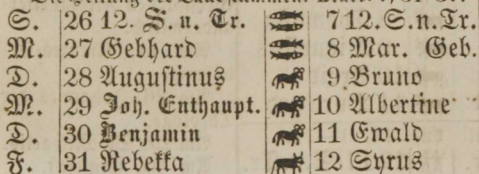 S. 26 12. S. n. Tr. 7 12. S. n. Tr.
M. 27 Gebhard 8 Mar. Geb.
D. 28 Auguſtinus 9 Bruno
M. 29 Joh. Enthaupt. 10 Albertine
D. 30 Benjamin 11 Ewald
F. 31 Rebekka 12 Syrus